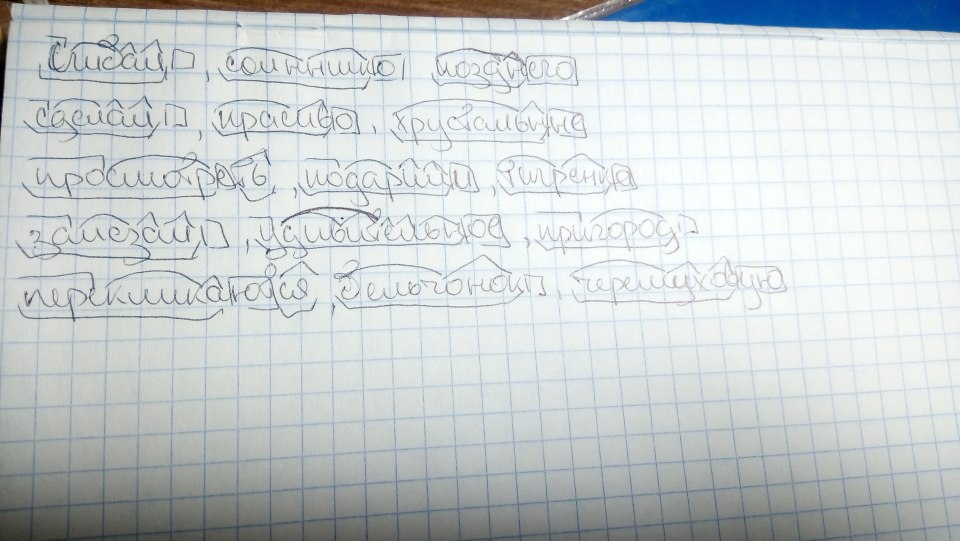 , солнышко позднего
сделал, красиво, хрустальные
просмотреть, подарили, тигренка
залезал, удивительное, пригород
перекликаются, бельчонок, черемуховую